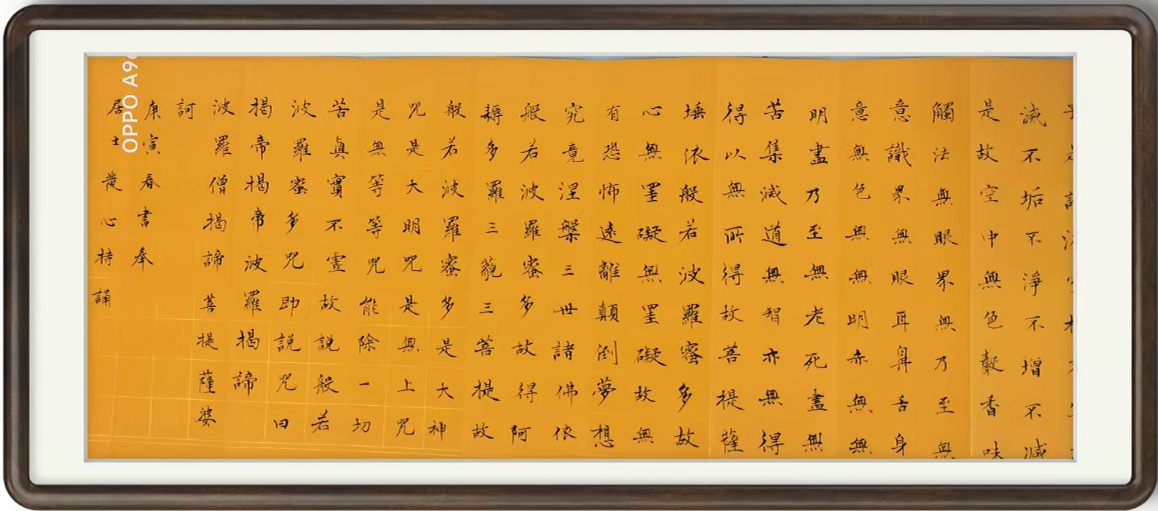 滅不垢不淨不增不減
是故空中無色聲香味
觸法無眼界無乃至無
意識界無眼耳鼻舌身
意無色無無明亦無無
明盡乃至無老死盡無
苦集滅道無智亦無得
得以無所得故菩提薩
埵依般若波羅蜜多故
心無罣礙無罣礙故無
有恐怖遠離顛倒夢想
究竟涅槃三世諸佛依
般若波羅蜜多故得阿
耨多羅三藐三菩提故
般若波羅蜜多是大神
咒是大明咒是無上咒
是無等等咒能除一切
苦眞實不虛故說般若
波羅蜜多咒即說咒曰
揭帝揭帝波羅揭諦
波羅僧揭諦菩提薩婆
訶
庚寅春書奉
居士發心持誦
OPPO A9